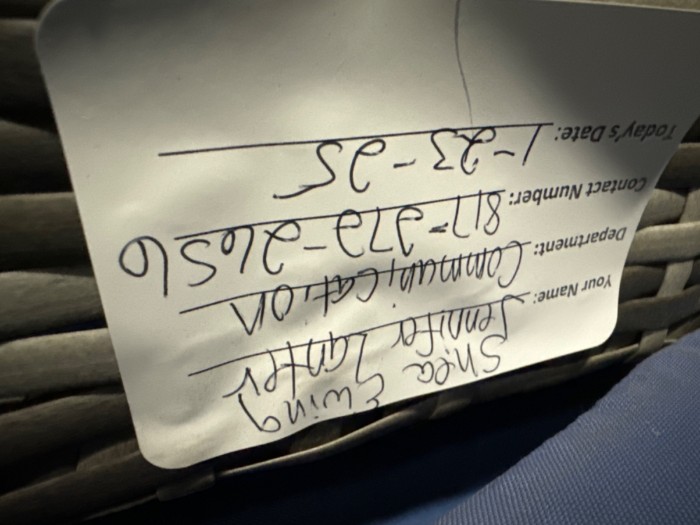 Shea Ewing
Your Name: Jennifer
Department: Communication
Contact Number: 817-272-2656
Today's Date: 1-23-25